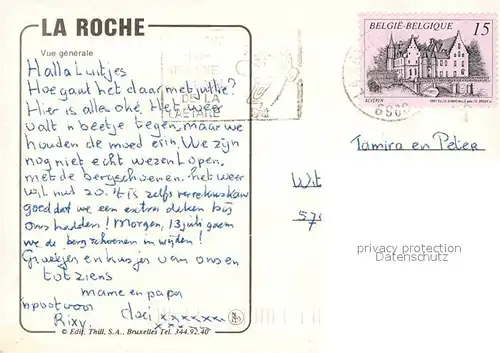 LA ROCHE
Vue générale
Halla Luitjes
Hoe gaat het daar met jullie?
Hier is alles oké. Het weer
valt n beetje tegen, maar we
houden de moed erin. We zijn
nog niet echt wezen lopen,
met de bergschoenen. Het weer
wil nud zo. 't is zelfs
goed dat we een extra deken bij
ons hadden! Morgen, 13 juli gaan
we de bergschoenen in wijden!
Groetjes en kusjes van ons en
tot ziens
mame en papa
n poot voor doei xxxxxxx
Rixy. xxxxxx
© Edit. Thill, S.A., Bruxelles Tel. 344.92.40
DE LA
LAETARE
BELGIË-BELGIQUE 15
BEVEREN
Tamira en Peter
Wit
57
privacy protection
Datenschutz